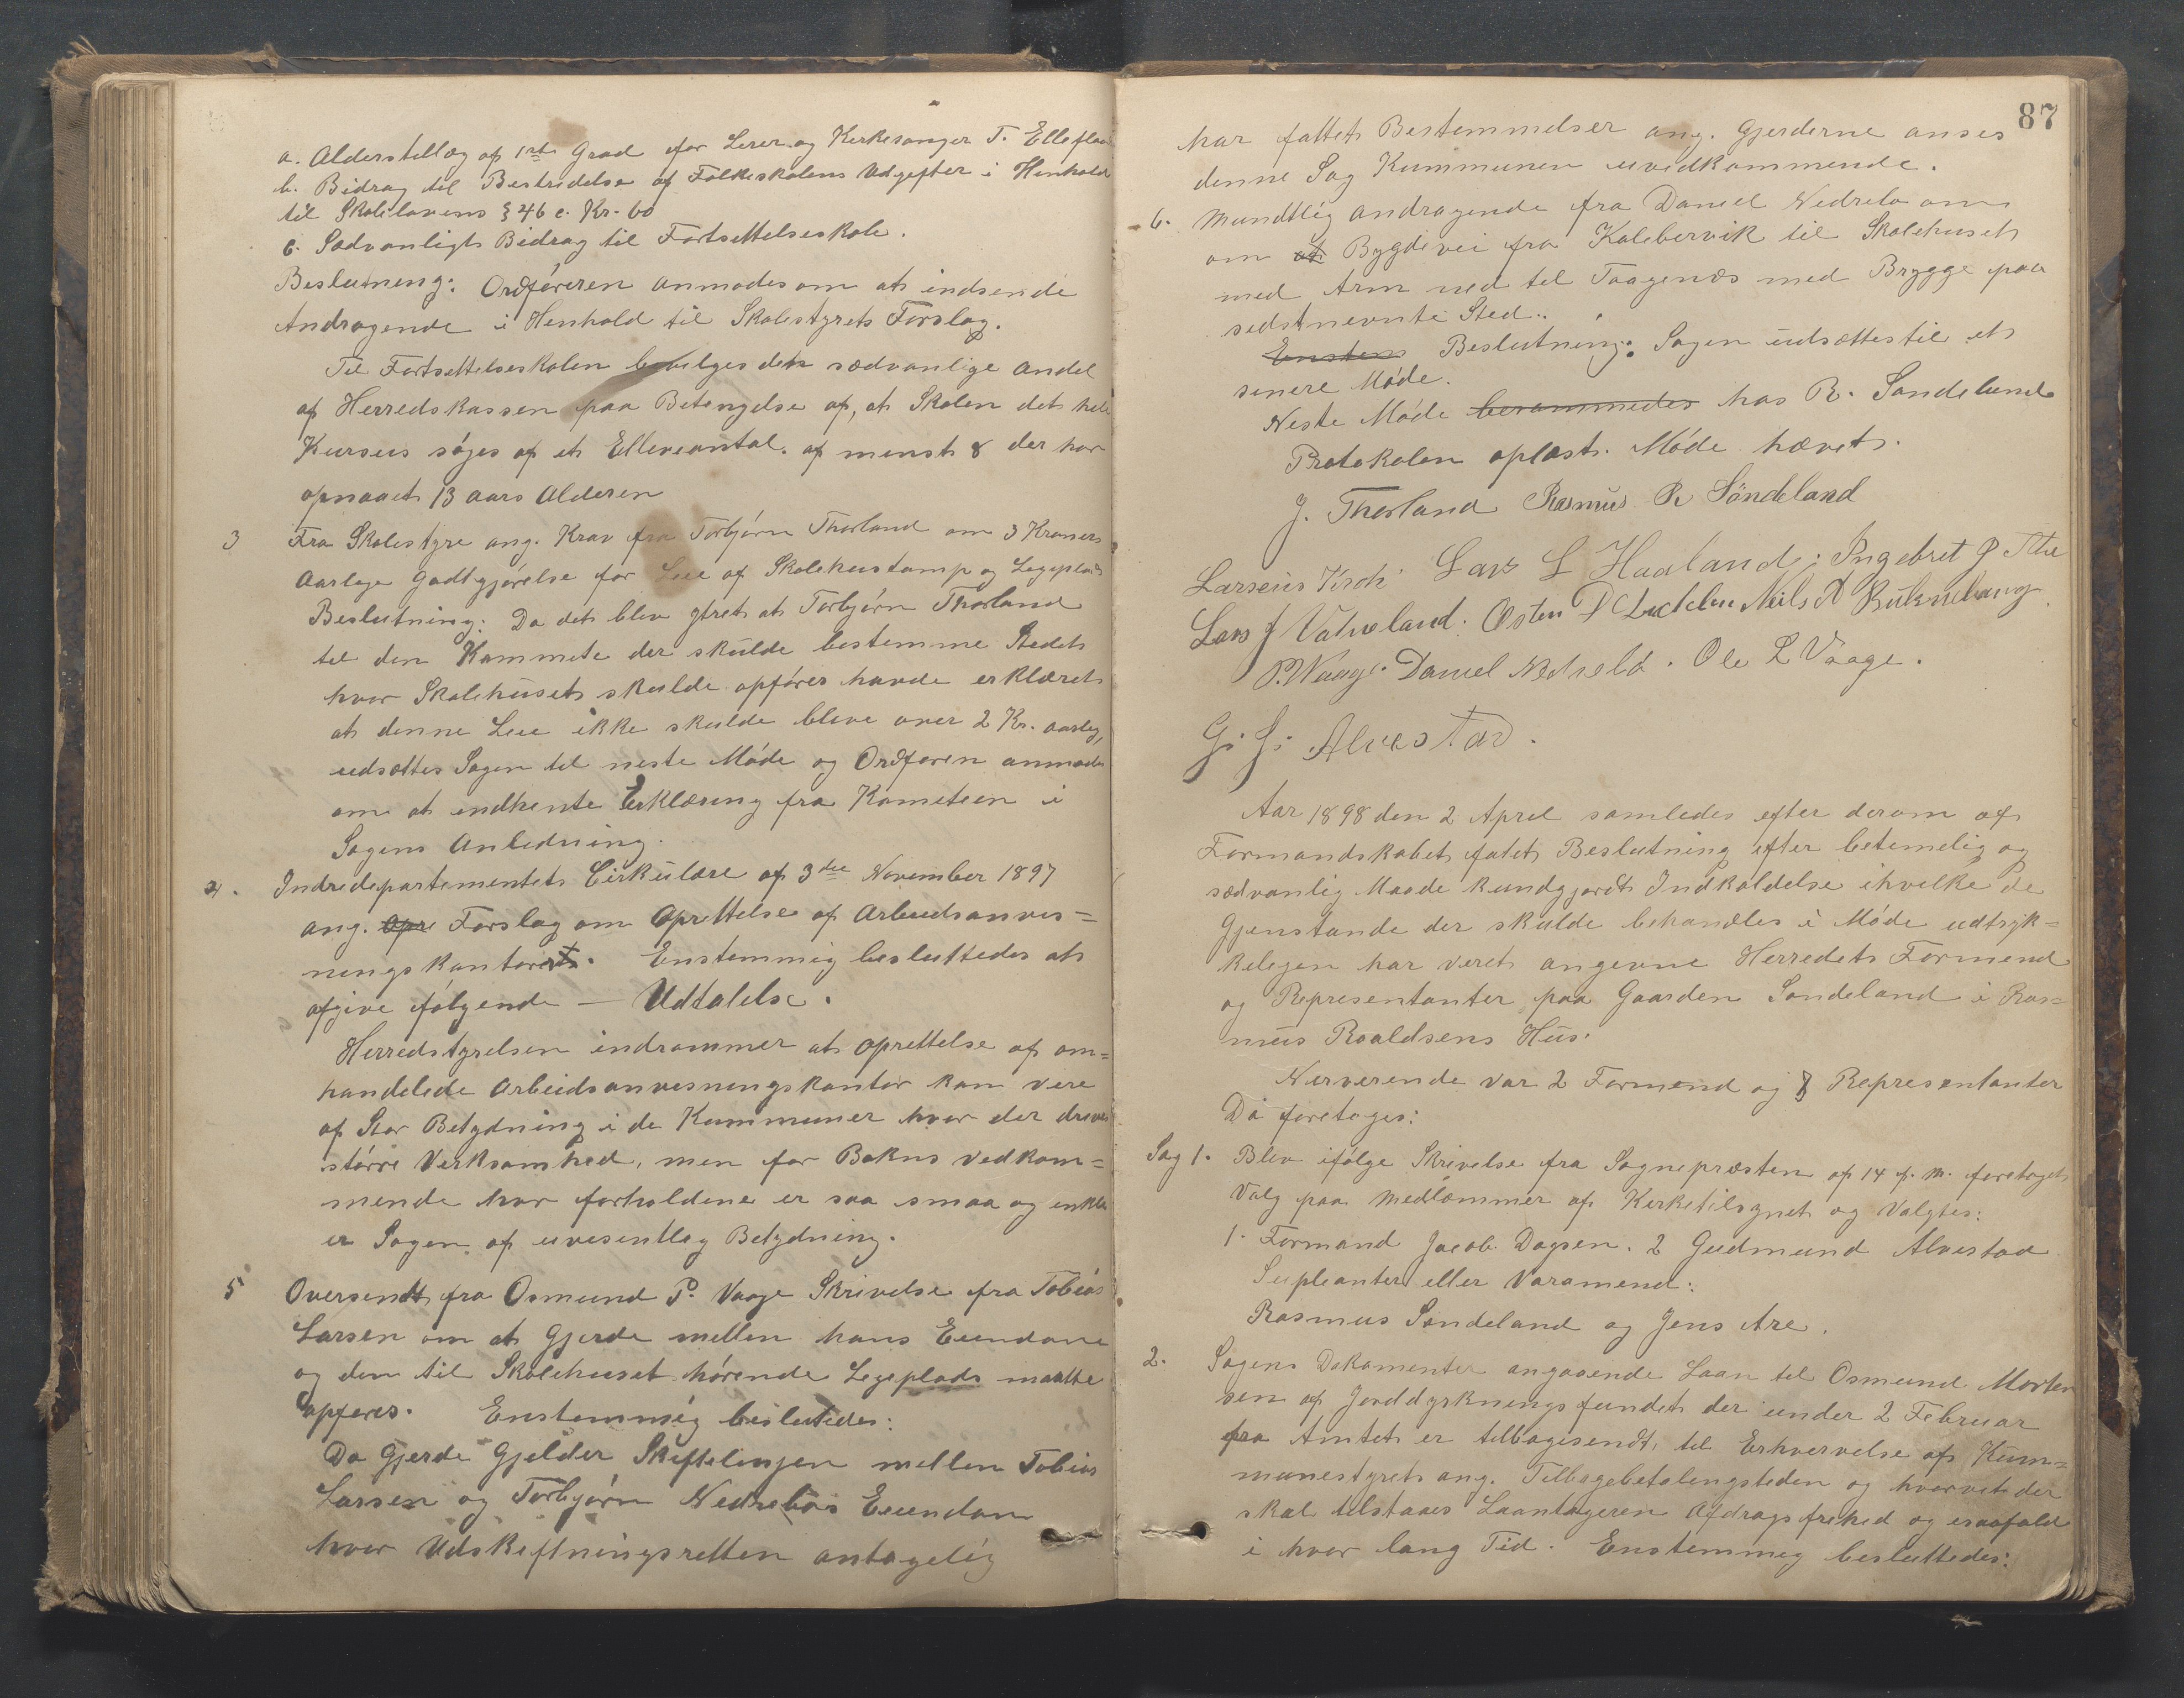 a. Alderstillæg af 1ste Grad for Lerer og Kirkesanger T. Elleflaa
b. Bidrag til Bestridelse af Folkeskolens Udgifter i Henhold
til Skolelovens § 46 c. Kr. 60
c. Sædvanligt Bidrag til Fortsettelseskole.
Beslutning: Ordföreren anmodes om at indsende
Andragende i Henhold til Skolestyrets Forslag.
Til Fortsettelseskolen bevilges den sædvanlige Andel
af Herredskassen paa Betengelse af, at Skolen det hele
Kursus söges af et Elleveantal af minst 8 der har
opnaaet 13 aars Alderen
3 Fra Skolestyre ang. Krav fra Torbjörn Thorland om 3 Kroners
Aarlege Godtgjörelse for Leie af Skolehustomp og Legeplads
Beslutning: Da det blev ytret at Torbjörn Thorland
til den Kommete der skulde bestemme Stedet
hvor Skolehuset skulde opföres havde erklæret
at denne Leie ikke skulde blive over 2 Kr. aarleg,
udsættes Sagen til neste Möde og Ordføren anmodes
om at indhente Erklæring fra Kometeen i
Sagens Anledning.
4. Indredepartementets Cirkulære af 3die November 1897
ang. Opre Forslag om Oprettelse af Arbeidsanvis=
ningskontoret. Enstemmig besluttedes at
afgive fölgende — Udtalelse.
Herredstyrelsen indrømmer at oprettelse af om=
handelede Arbeidsanvesningskontor kan vere
af Stor Betydning i de Kommuner hvor der drives
större Verksomhed, men for Bokns Vedkom=
mende hvor forholdene er saa smaa og enkle
er Sagen af uvesentleg Betydning.
5 Oversendt fra Osmund P. Vaage Skrivelse fra Tobias
Larsen om at Gjerde mellem hans Eiendom
og den til Skolehuset hörende Legeplads maatte
opføres. Enstemmig beslutedes:
Da Gjerde Gjelder Skiftelinjen mellem Tobias
Larsen og Torbjørn Nedrebös Eiendom
hvor Udskiftningsretten antagelig
87
har fattet Bestemmelser ang. Gjerderne anses
denne Sag Kommunen uvedkommende.
6. Mundtlig Andragende fra Daniel Nedrebø om
om at Bygdevei fra Kalebervik til Skolehuset
med Arm ned til Taagenæs med Brygge paa
sidstnevnte Sted.
Enstem Beslutning: Sagen udsættes til et
senere Möde.
Neste Möde berammedes hos R. Sandeland
Protokolen oplæst. Möde hævet.
J. Thorland Rasmus R Söndeland
Lars L Haaland; Ingebret P
Lars J Vatneland. Osten Neils
P. Vaage. Daniel Nedrebö. Ole L Vaage.
G. J. Alvestad.
Aar 1898 den 2 April samledes efter derom af
Formandskabet fatet Beslutning efter betimelig og
sædvanlig Maade kundgjordt Indkaldelse ihvilke de
Gjenstande der skulde behandles i Möde udtryk=
kelegen har veret angevne Herredets Formend
og Representanter paa Gaarden Sondeland i Ras=
mus Roaldsens Hus.
Nerverende var 2 Formend og 8 Representanter
Da foretages:
Sag 1. Blev ifölge Skrivelse fra Sognepræsten af 14 f. M. foretaget
Valg paa Medlæmmer af Kerketilsynet og Valgtes:
1. Formand Jacob Dagsen. 2 Gudmund Alvestad
Supleanter eller Varamend:
Rasmus Søndeland og Jens Are.
2. Sagens Dokumenter angaaende Laan til Osmund Morten
sen af Jorddyrkningsfundet der under 2 Februar
fra Amtet er tilbagesendt, til Erhvervelse af Kum=
munestyrets ang. Tilbagebetalingsteden og hvorvet der
skal tilstaaes Laantageren Afdragsfrihed og isaafald
i hvor lang Tid. Enstemmeg besluttedes: